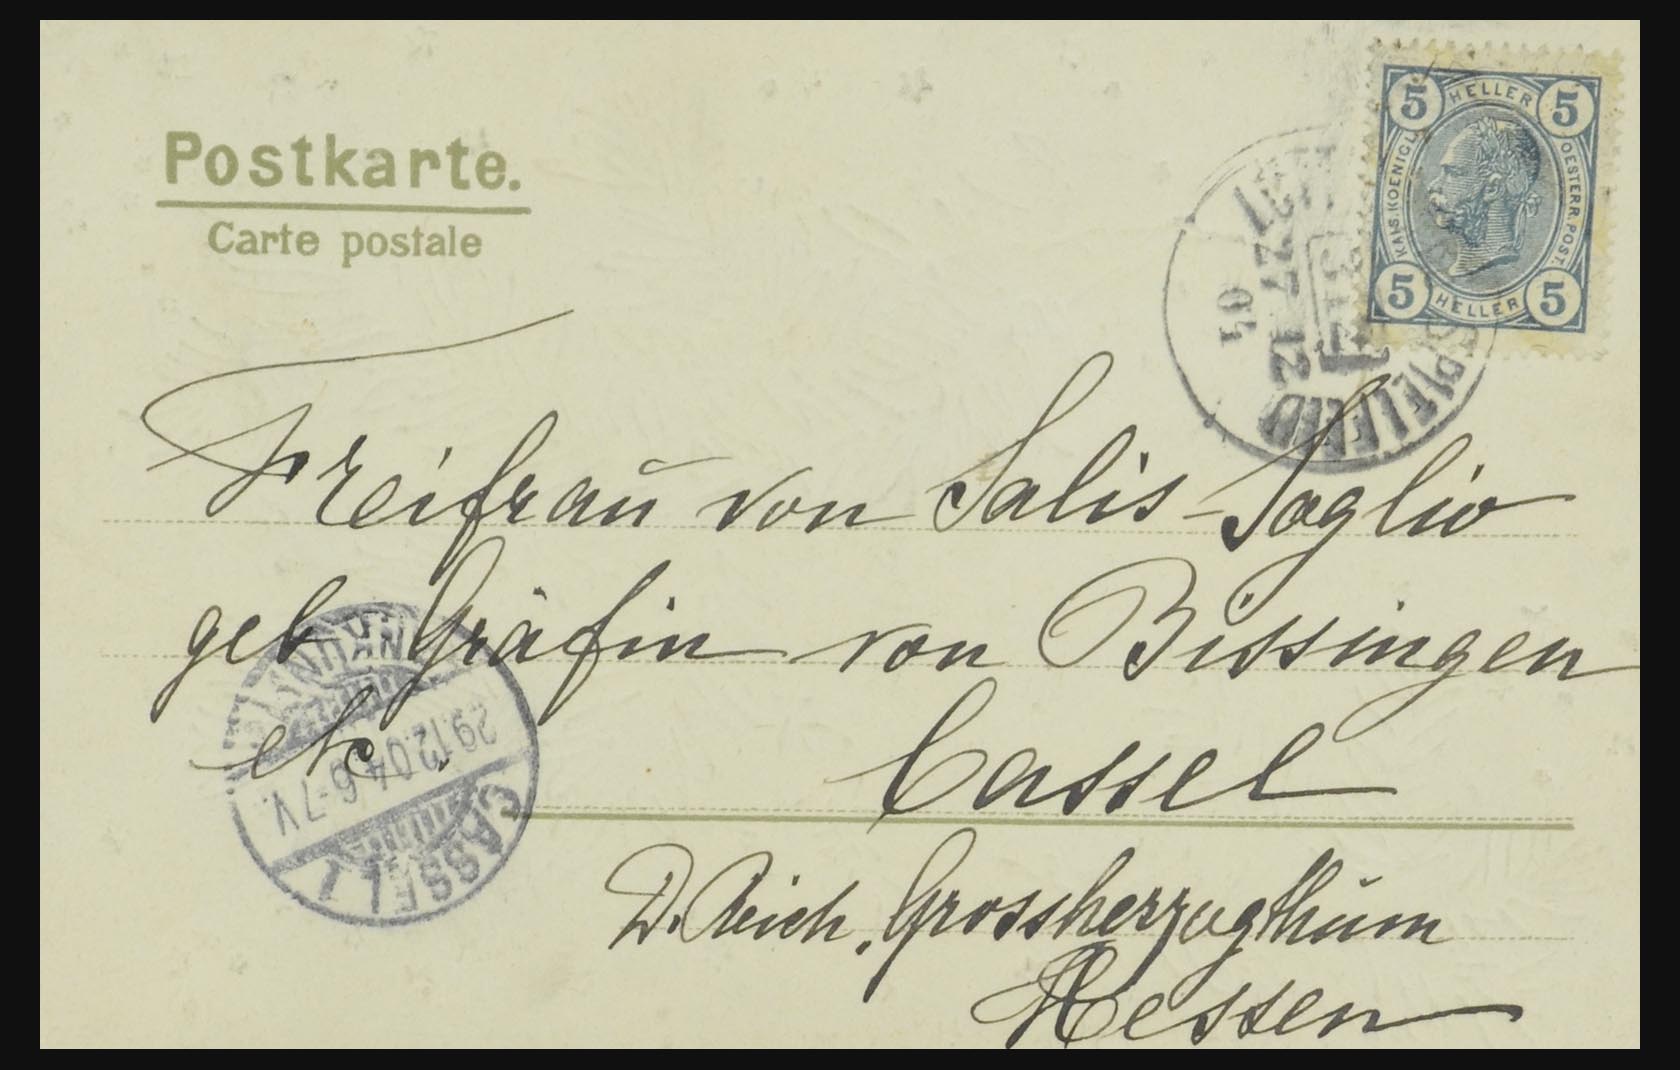 Postkarte.
Carte postale
5 HELLER 5
KAIS. KOENIGL. OESTERR. POST.
5 HELLER 5
27 12
04
SPIELFELD
Freifrau von Salis-Soglio
geb Gräfin von Bissingen
etc.
Cassel
D. Reich, Grossherzogthum
Hessen
ANKUNFT
29.12.04.6-7V.
CASSEL 1